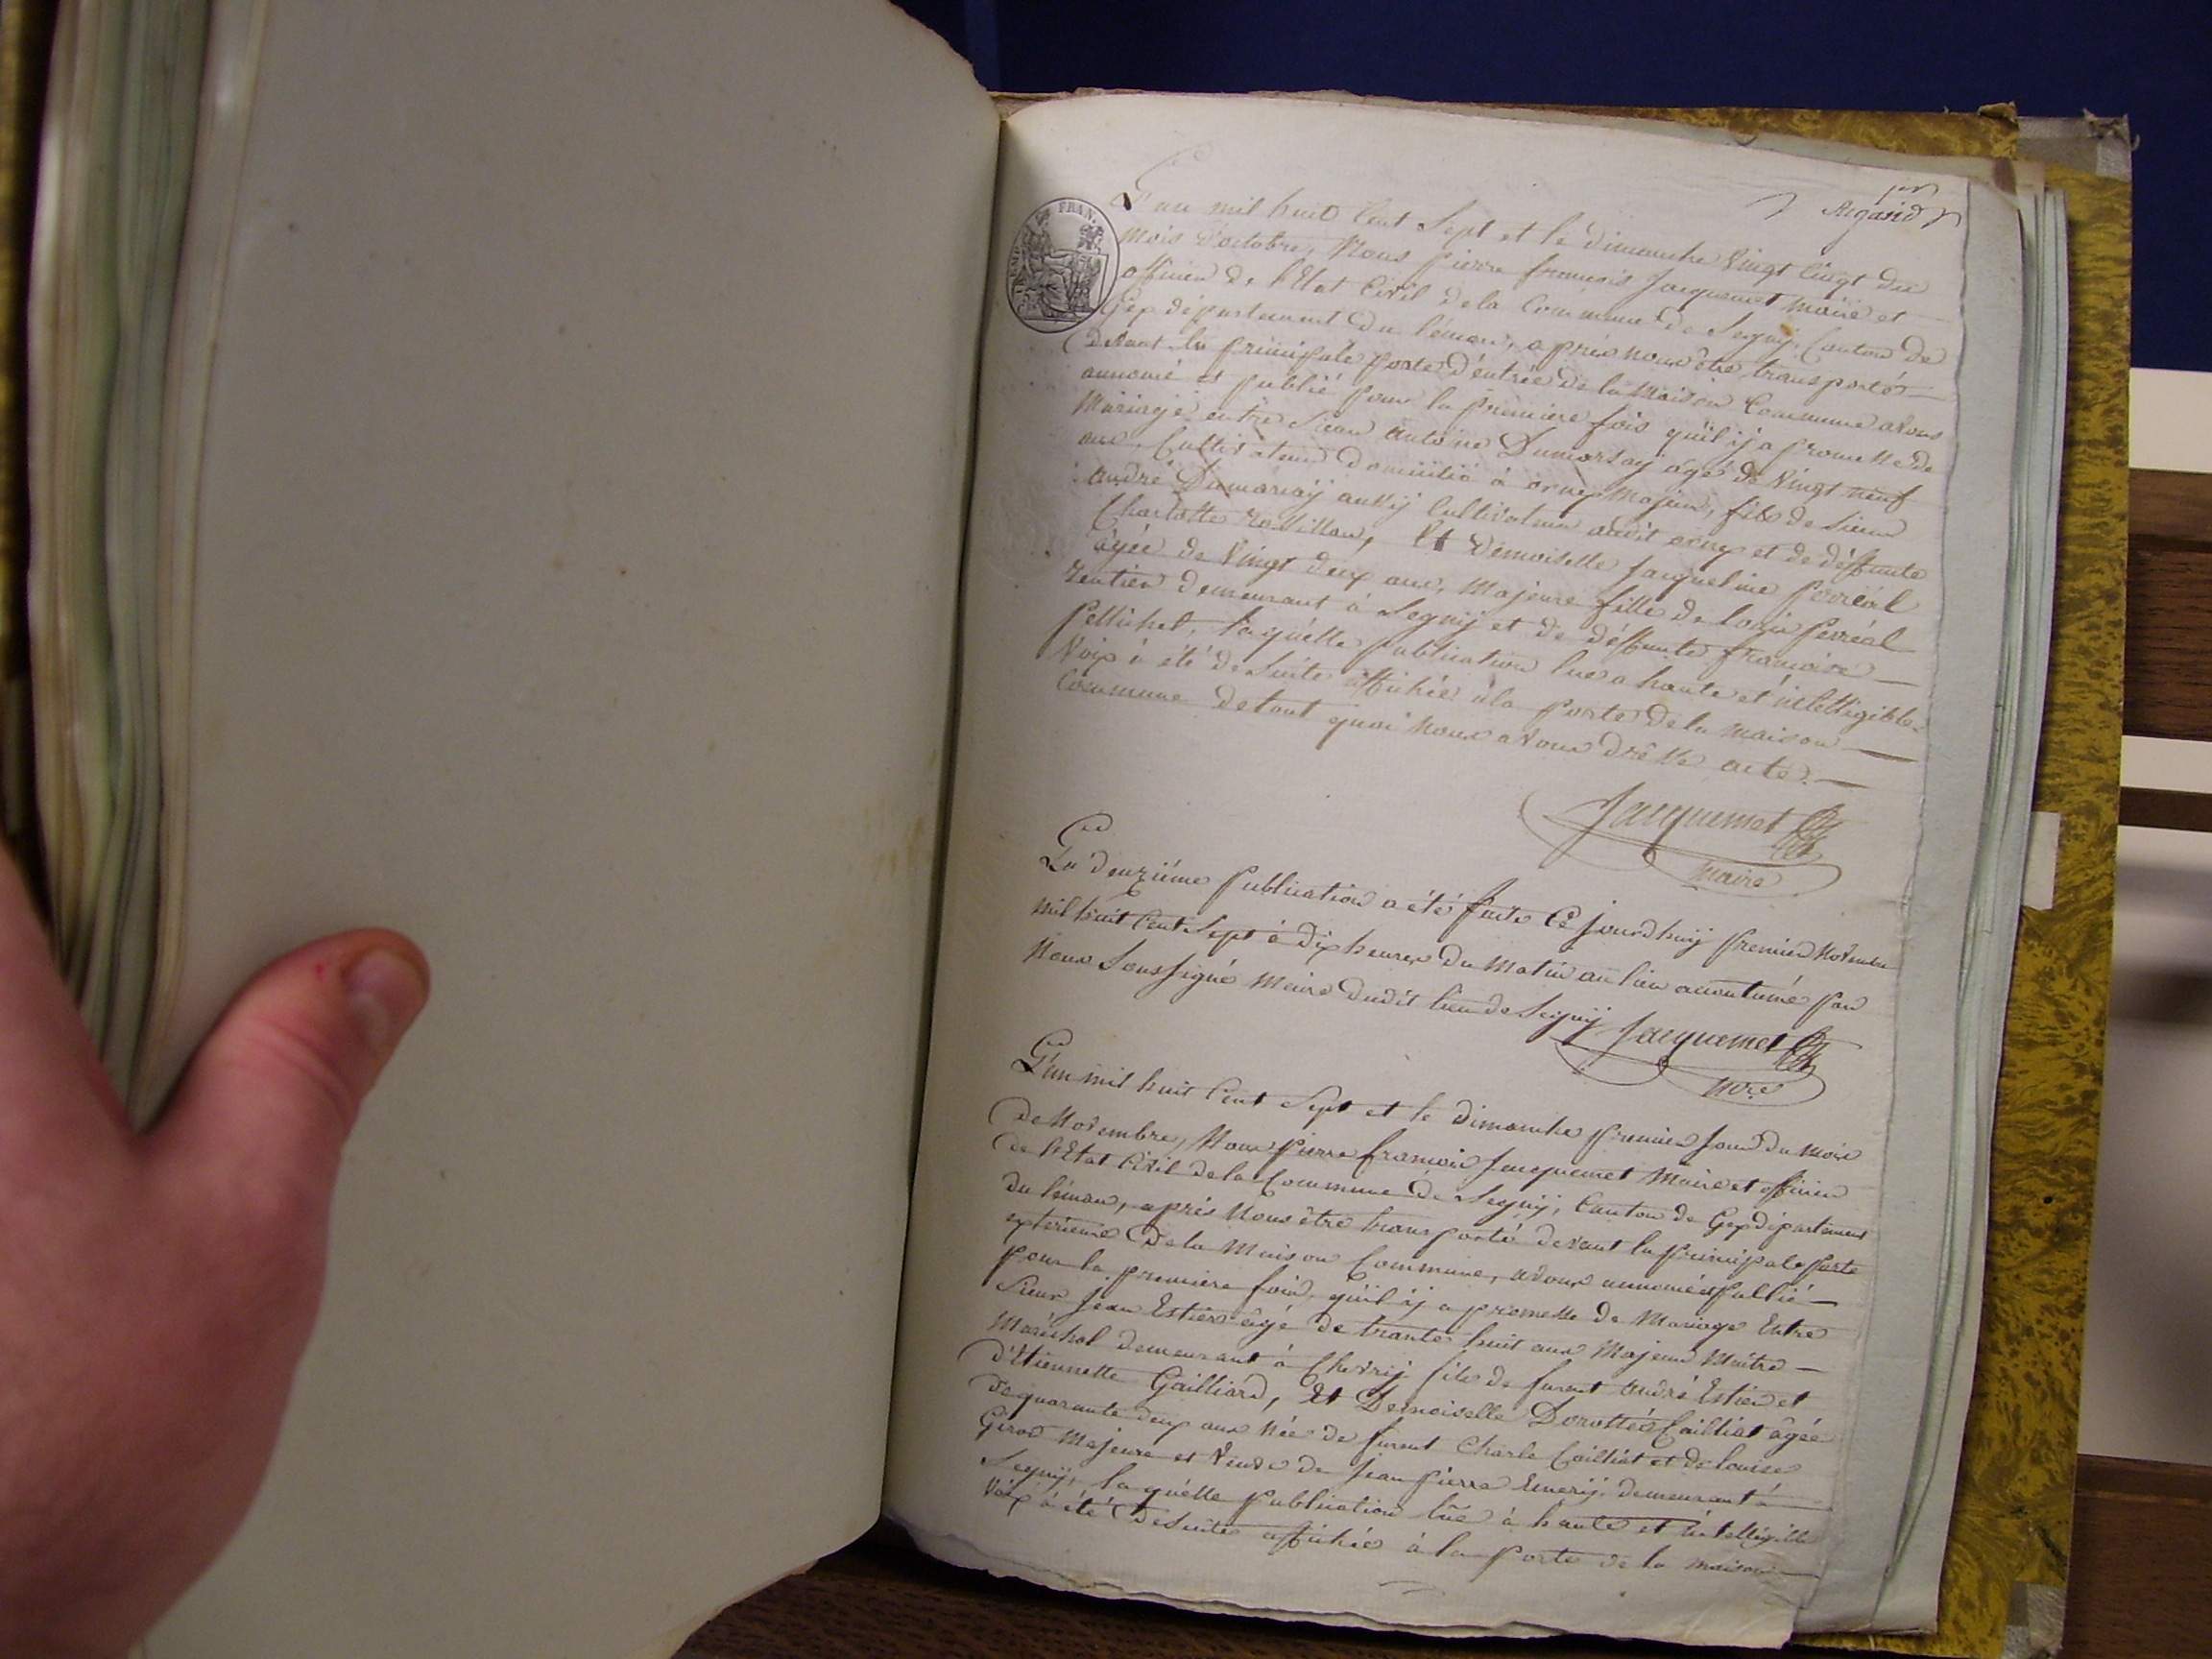 L'an mil huit Cent Sept et le dimanche Vingt Cinq du
mois d'octobre, Nous pierre francois Jacquemet maire et
officier de l'Etat Civil de la Commune de Segny, Canton de
Gex département du léman, après nous être transportés
devant la principale porte d'entrée de la maison Commune avons
annoncé et publié pour la premiere fois qu'il ij a promesse de
Mariage entre Sieur antoine Dumarsaij âgé de Vingt neuf
ans, Cultivateur domicilié à ornex Majeur, fils de Sieur
andré Dumarsaij aussij Cultivateur audit ornex et de déffunte
Charlotte, Et Demoiselle Jacqueline perréal
âgée de Vingt deux ans, Majeure fille de Louis perréal
rentier demeurant à Segnij et de déffunte francoise
pellichet, laquélle publication lue a haute et intelligible
Voix à été de Suite affichée à la porte de la maison
Commune de tout quoi nous avons drésse acte.
Jacquemet
maire
La deuxiéme publication a été faite Ce jourd'huij premier Novembre
mil huit Cent Sept à dix heures du matin au lieu accoutumé par
Nous Soussigné Maire dudit lieu de Segnij Jacquemet
L'an mil huit Cent Sept et le dimanche premier Jour du mois
de Novembre, Nous pierre francois Jacquemet Maire et officier
de l'Etat Civil de la Commune de Segnij, Canton de Gex département
du léman, aprés Nous être transporté devant la principale porte
exterieure de la Maison Commune, avons annoncé et publié
pour la premiere fois, qu'il ij a promesse de Mariage Entre
Sieur Jean Estier âgé de trante huit ans Majeur Maitre
Maréchal demeurant à Chevrij fils de furent André Estier et
d'Etiennette Gailliard, Et Demoiselle Dorottée Cailliat âgée
de quarante deux ans Née de furent Charle Cailliat et de louise
Girod Majeure et Veuve de Jean pierre Emerij, demeurant à
Segnij, laquélle publication lüe à haute et intelligible
Voix à été de Suite affichée à la porte de la maison